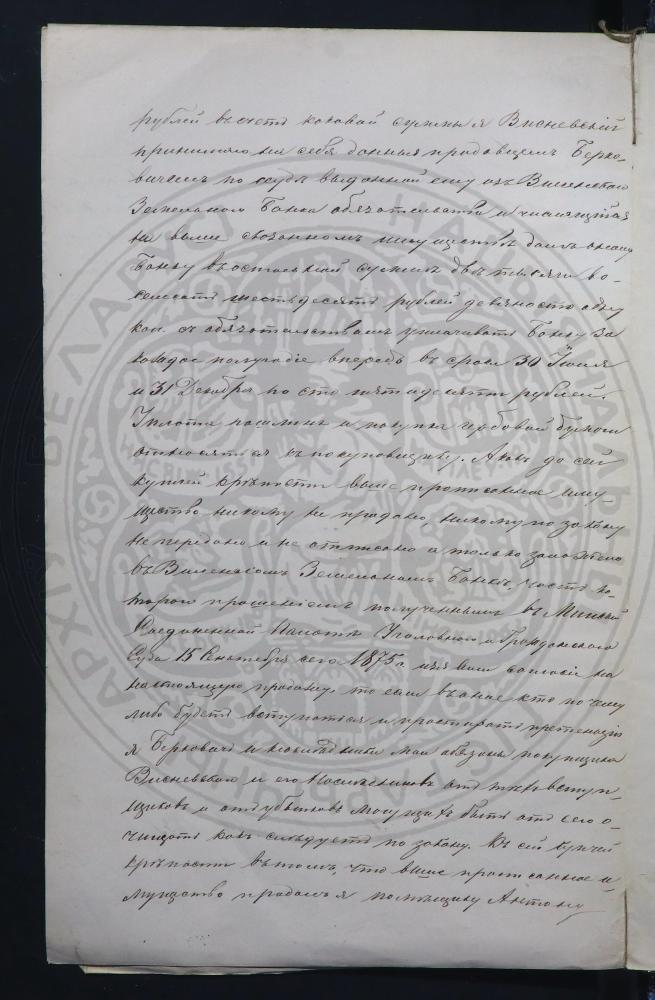 рублей въ счетъ каковой суммы я Висневскій
принимаю на себя данныя продавцемъ Берко-
вичемъ по ссудѣ выданной ему изъ Виленскаго
Земельнаго Банка обязательства и числящійся
на выше сказанномъ имуществѣ долгъ оному
Банку въ остальной суммѣ двѣ тысячи во-
семьсотъ шестьдесятъ рублей девяносто одну
коп. съ обязательствомъ уплачивать Банку за
каждое полугодіе впередъ въ сроки 30 Іюня
и 31 Декабря по сто пятидесяти рублей.
Уплата пошлинъ и покупка гербовой бумаги
относятся къ покупщику. А какъ до сей
купчей крѣпости выше прописанное иму
щество никому не продано, никому по закону
не передано и не отписано а только заложено
въ Виленскомъ Земельномъ Банкѣ, часть ко-
тораго прошеніемъ полученнымъ въ Минской
Соединенной Палатѣ Уголовнаго и Гражданскаго
Суда 15 Сентября сего 1875 г. изъявилъ согласіе на
настоящую продажу. то если въ оное кто по чему
либо будетъ вступаться и простирать претензіи
я Берковичъ и наслѣдники мои обязаны покупщика
Висневскаго и его Наслѣдниковъ отъ тѣхъ вступ-
щиковъ и отъ убытковъ могущихъ быть отъ сего о-
чищать какъ слѣдуетъ по закону. Къ сей купчей
крѣпости въ томъ, что выше прописанное и-
мущество продалъ я помѣщику Антону